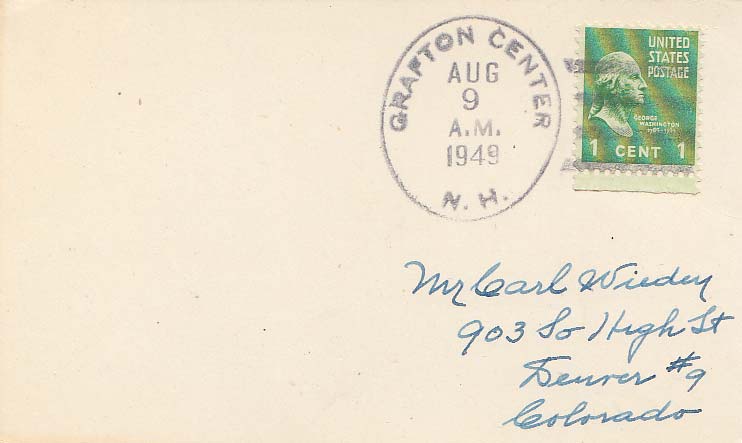 GRAFTON CENTER
AUG
9
A.M.
1949
N. H.
UNITED
STATES
POSTAGE
GEORGE
WASHINGTON
1 CENT 1
Mr Carl Wieden
903 So High St
Denver #9
Colorado